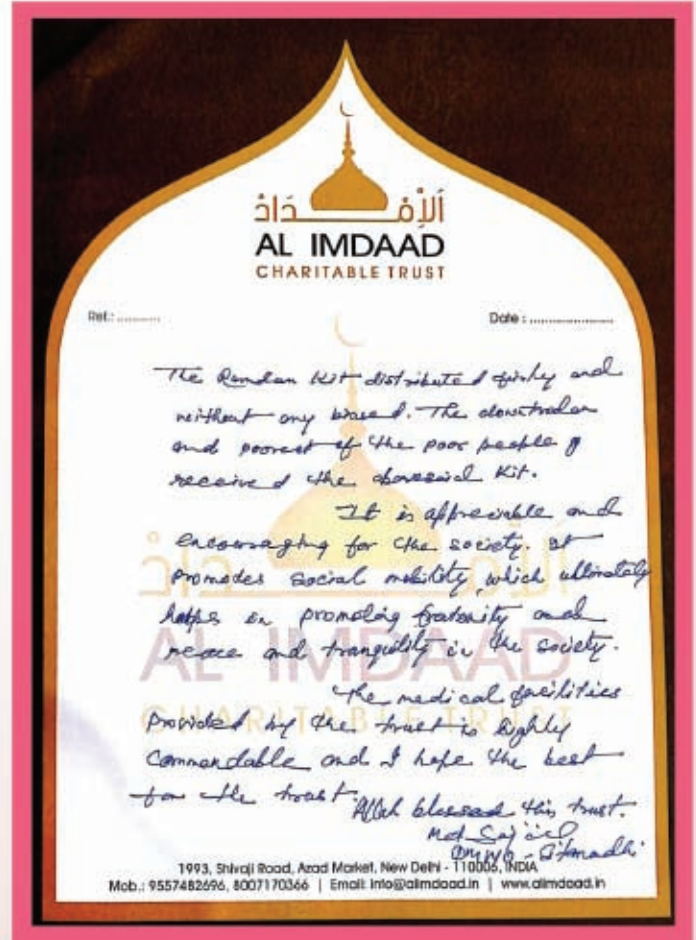 اَلْإِمْدَادْ
AL IMDAAD
CHARITABLE TRUST
Ref.: ............
Date : ......................
The Ramdan Kit distributed and
without any biased. The downtrodan
and poorest of the poor people
received the aboresaid Kit.
It is appreciable and
encouraging for the society. It
promotes social mobility, which ultimately
helps in promoting fratarnity and
peace and tranquility in the society.
The medical facilities
provided by the trust is highly
Commendable and I hope the best
for the trust.
Allah blessed this trust.
Md
DMWO - Sitamadhi
اَلْإِمْدَادْ
AL IMDAAD
CHARITABLE TRUST
1993, Shivaji Road, Azad Market, New Delhi - 110006, INDIA
Mob.: 9557482696, 8007170366 | Email: info@alimdaad.in | www.alimdaad.in